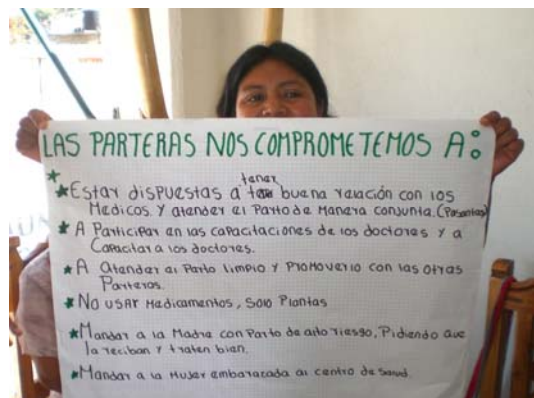 LAS PARTERAS NOS COMPROMETEMOS A:
tener
Estar dispuestas a buena relación con los
Medicos. Y atender el Parto de Manera conjunta. (Pasantes)
A Participar en las capacitaciones de los doctores y a
Capacitar a los doctores.
A atender al Parto limpio y Promoverlo con las otras
Parteras.
No usar Medicamentos, Solo Plantas
Mandar a la Madre con Parto de alto riesgo, Pidiendo que
la reciban y traten bien.
Mandar a la Mujer embarazada al centro de Salud.